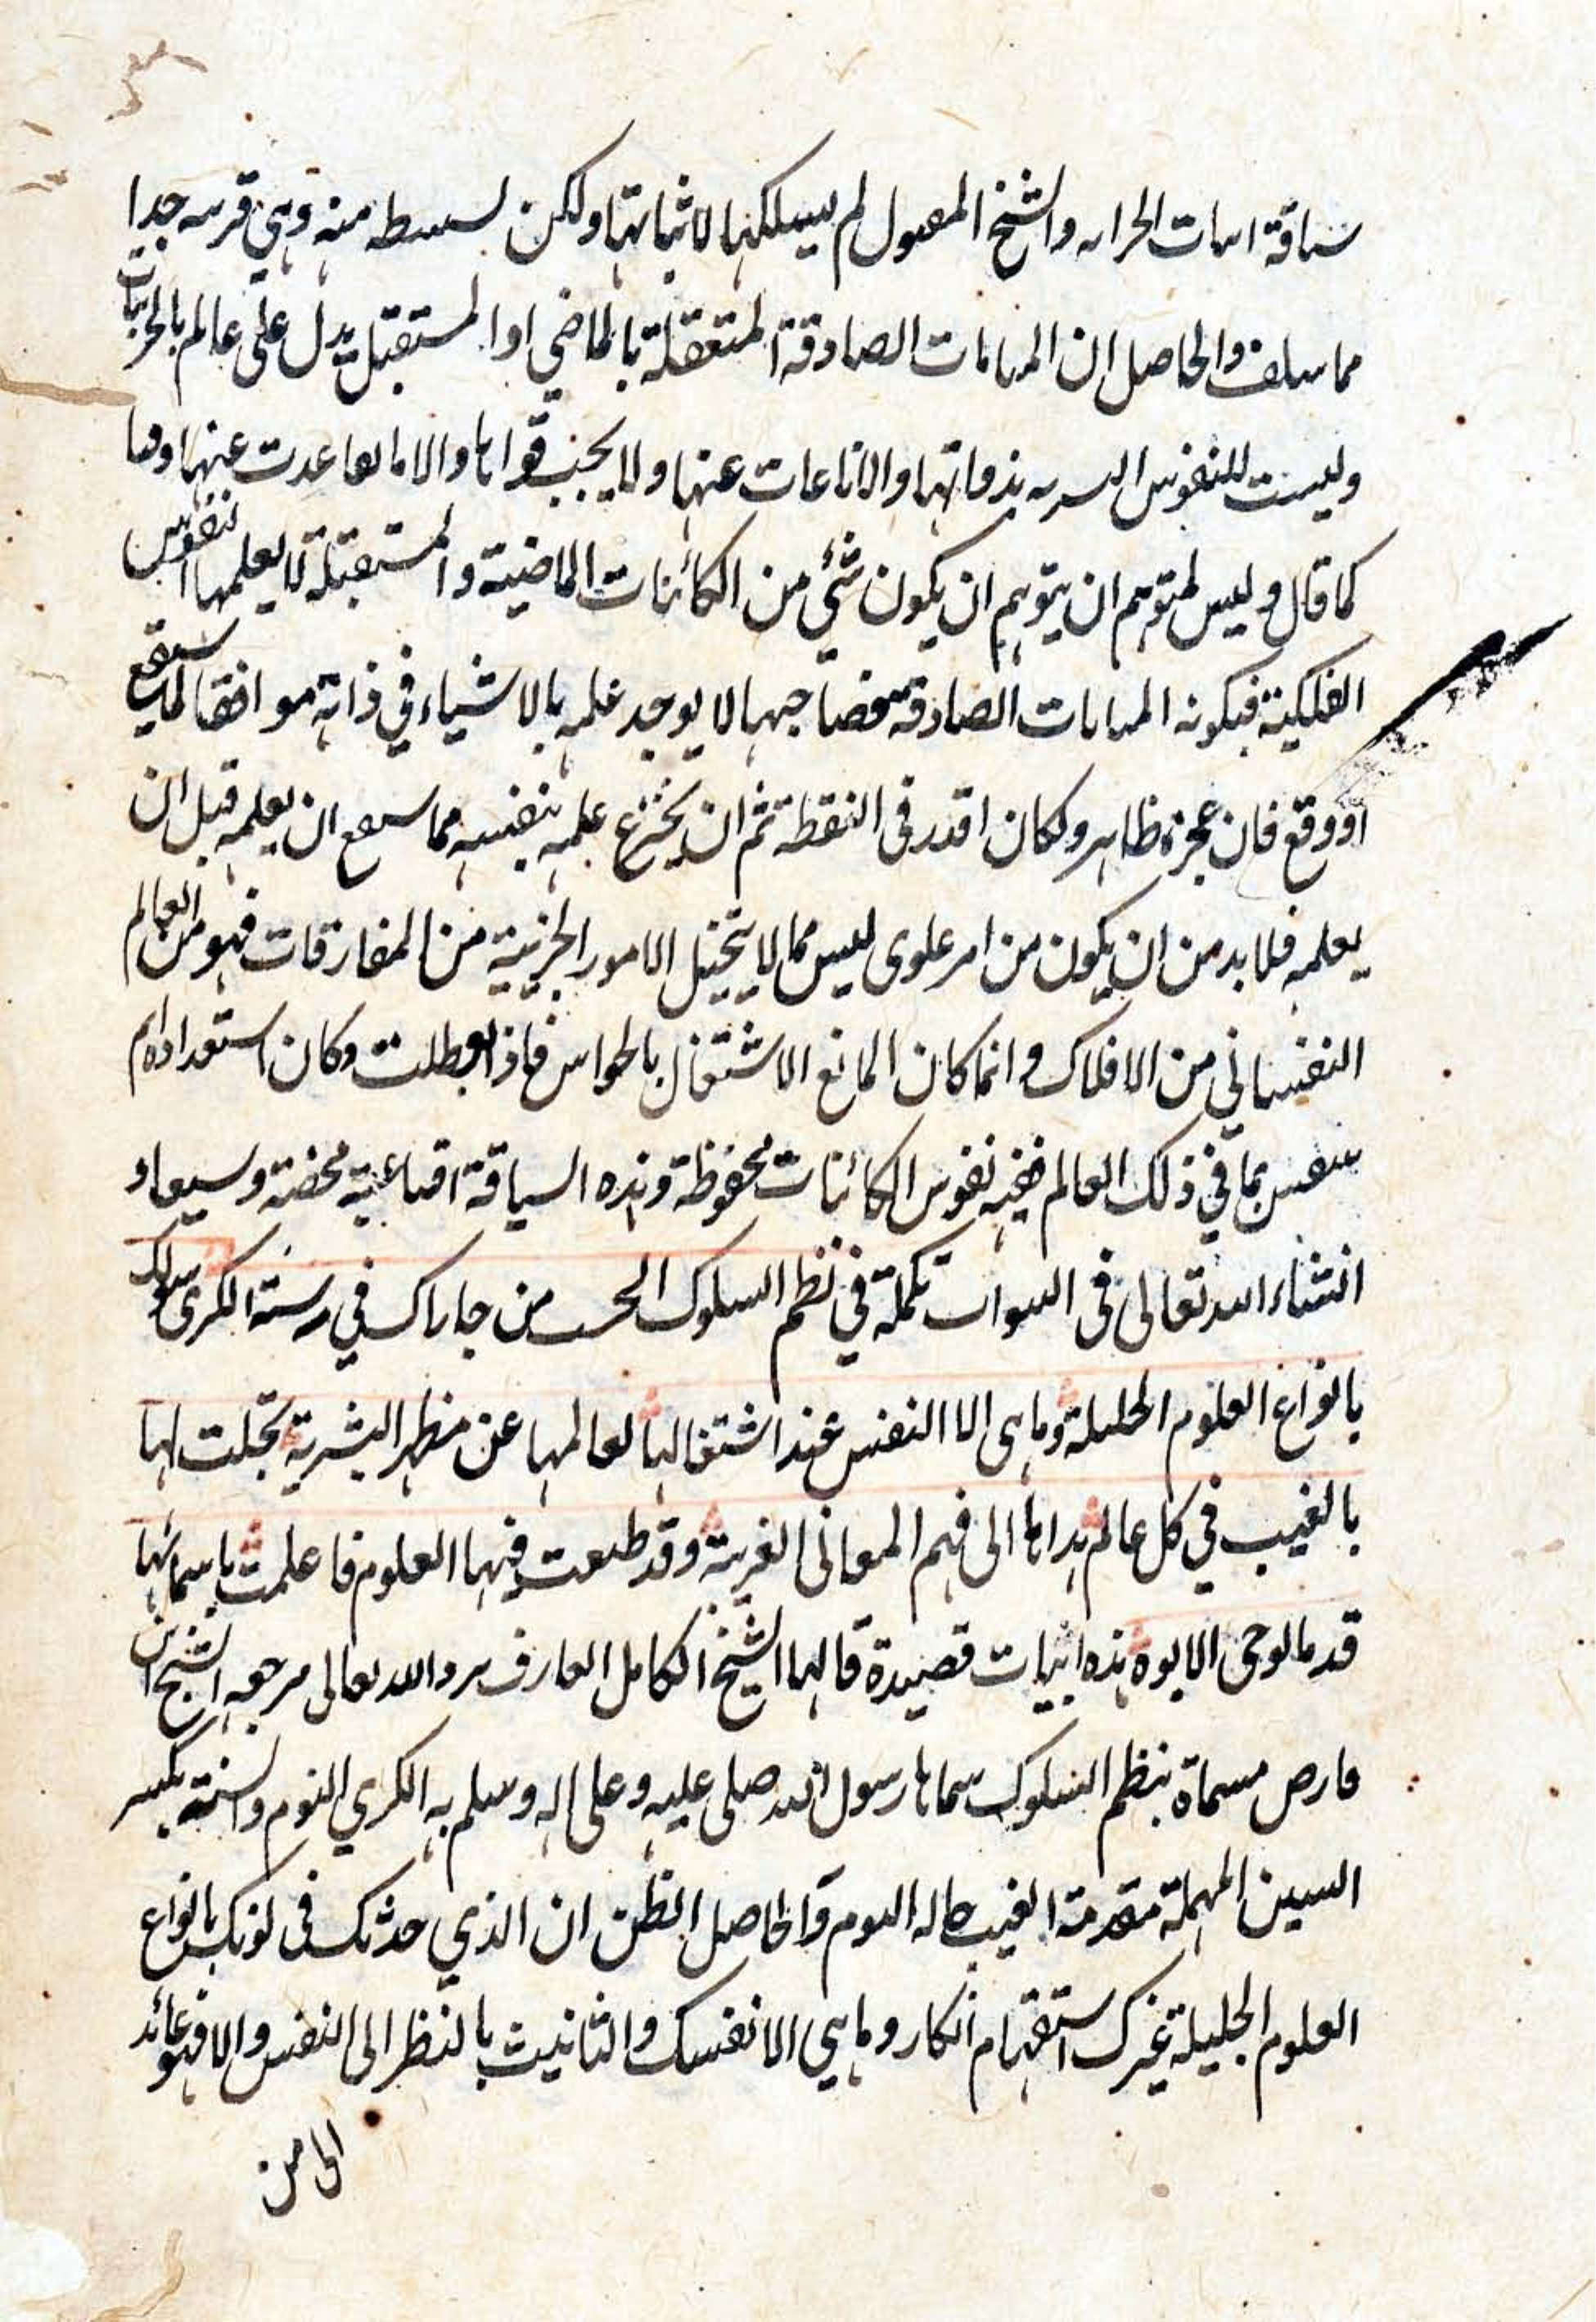 سياقة اثبات الجزاء والشيخ المقبول لم يسلكها لاثباتها ولكن لتستنبط منه وهي قريبة جدا
مما سلف والحاصل ان المنامات الصادقة المتعقلة بالماضي او المستقبل يدل على عالم بالجزئيات
وليست للنفوس البشرية بذواتها والا ما غابت عنها ولا بجنب قواها والا ما عدت عنها
كما قال وليس لمتوهم ان يتوهم ان يكون شئي من الكائنات الماضية والمستقبلة لا يعلمها النفوس
الفلكية فيكون المنامات الصادقة صاحبها لا يوجد علمه بالاشياء في ذاته موافقا لما سيقع
او وقع فان عجزه ظاهر ولكان اقدر في اليقظة ثم ان يخترع علمه بنفسه مما سيقع ان يعلمه قبل ان
يعلمه فلابد من ان يكون من امر علوى ليس مما لا يتخيل الامور الجزئية من المفارقات فهو من العالم
النفساني من الافلاك وانما كان المانع الاشتغال بالحواس فاذا بطلت وكان استعداد تام
بما في ذلك العالم ففيه نفوس الكائنات محفوظة وهذه السياقة اقناعية محضة وسيعاد
انشاء الله تعالى في النبوات تكملة في نظم السلوك من جاراك في سنة الكرى سواك
بانواع العلوم الجليلة وما هى الا النفس عند اشتغالها لعالمها عن مظهر البشرية تجلت لها
بالغيب في كل عالم هداها الى فهم المعانى الغريبة وقد طبعت فيها العلوم فاعلمت باسمائها
قدما لوحى الابوة هذه ابيات قصيدة قالها الشيخ الكامل العارف برد الله تعالى مرجعه الشيخ ابن
فارض مسماة بنظم السلوك سماها رسول الله صلى عليه وعلى اله وسلم به الكري النوم والسنة بكسر
السين المهملة مقدمة الغيب حاله النوم والحاصل انظن ان الذي حدثك في نومك بانواع
العلوم الجليلة غيرك استفهام انكار وما هي الا نفسك والتانيث بالنظر الى النفس والا فهو عائد
الى من